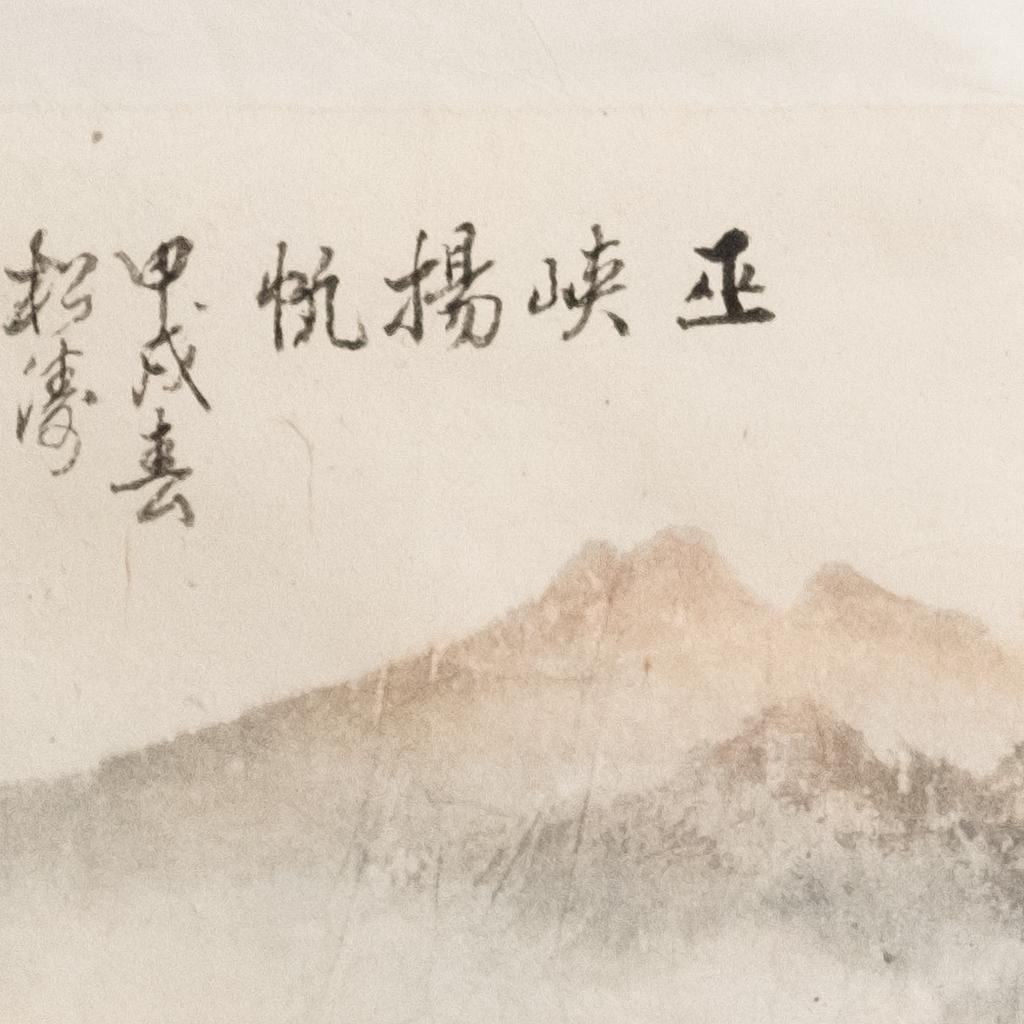 巫峽揚帆
甲戌春
松濤